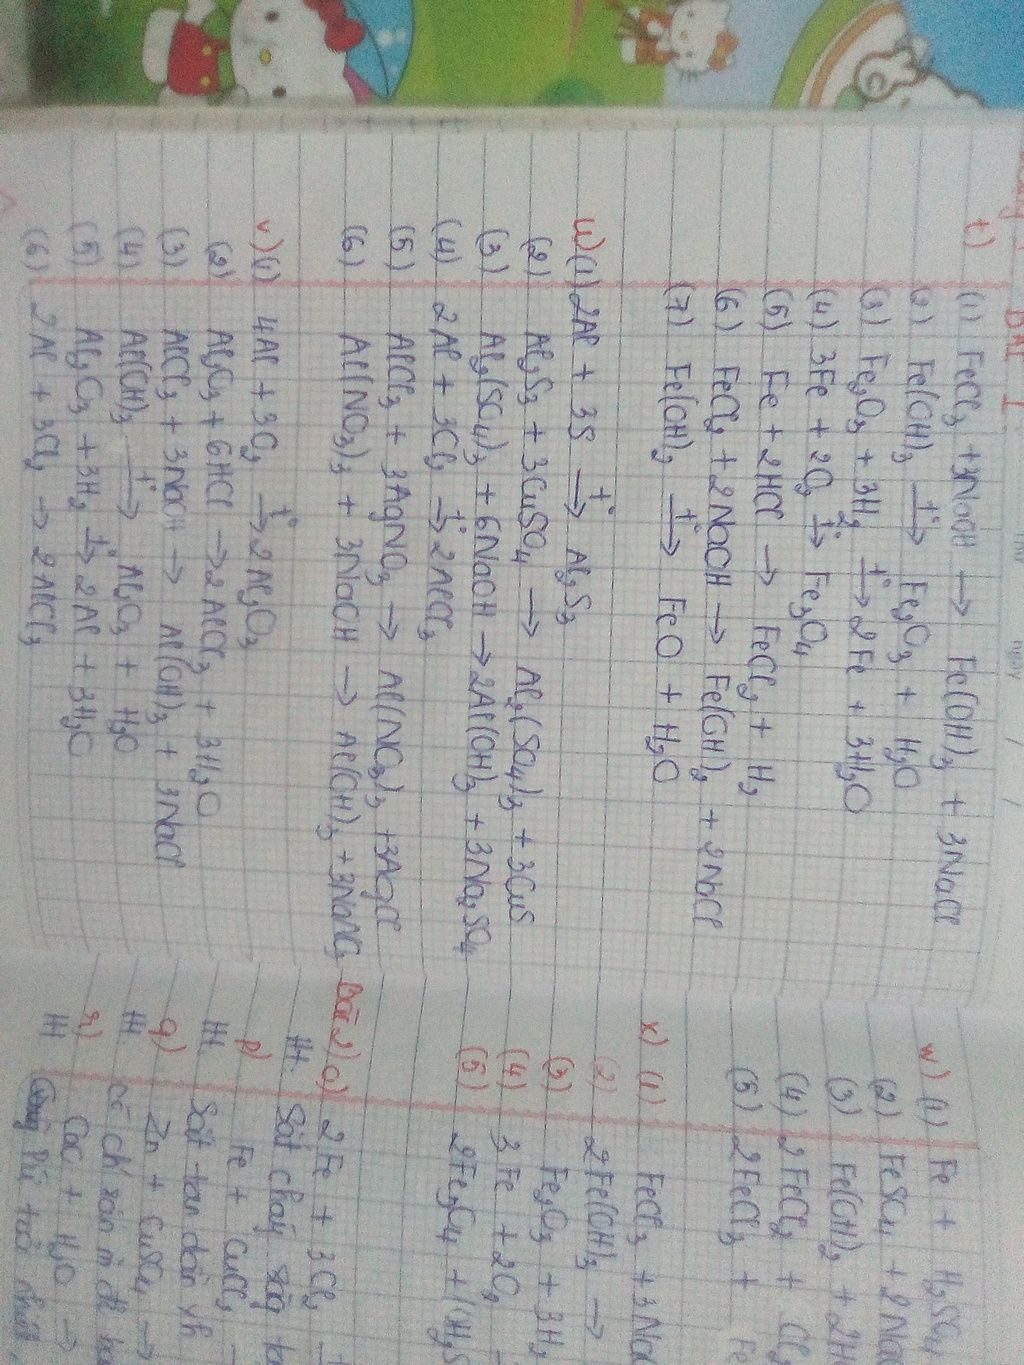 BÀI 1
t) (1) FeCl3 + 3NaOH → Fe(OH)3 + 3NaCl
(2) Fe(OH)3 t°→ Fe2O3 + H2O
(3) Fe2O3 + 3H2 t°→ 2Fe + 3H2O
(4) 3Fe + 2O2 t°→ Fe3O4
(5) Fe + 2HCl → FeCl2 + H2
(6) FeCl2 + 2NaOH → Fe(OH)2 + 2NaCl
(7) Fe(OH)2 t°→ FeO + H2O
u) (1) 2Al + 3S t°→ Al2S3
(2) Al2S3 + 3CuSO4 → Al2(SO4)3 + 3CuS
(3) Al2(SO4)3 + 6NaOH → 2Al(OH)3 + 3Na2SO4
(4) 2Al + 3Cl2 t°→ 2AlCl3
(5) AlCl3 + 3AgNO3 → Al(NO3)3 + 3AgCl
(6) Al(NO3)3 + 3NaOH → Al(OH)3 + 3NaNO3
v) (1) 4Al + 3O2 t°→ 2Al2O3
(2) Al2O3 + 6HCl → 2AlCl3 + 3H2O
(3) AlCl3 + 3NaOH → Al(OH)3 + 3NaCl
(4) Al(OH)3 t°→ Al2O3 + H2O
(5) Al2O3 + 3H2 t°→ 2Al + 3H2O
(6) 2Al + 3Cl2 → 2AlCl3
w) (1) Fe + H2SO4
(2) FeSO4 + 2Na
(3) Fe(OH)2 + 2H
(4) 2FeCl2 + Cl2
(5) 2FeCl3 + Fe
x) (1) FeCl3 + 3Na
(2) 2Fe(OH)3 →
(3) Fe2O3 + 3H2
(4) 3Fe + 2O2
(5) 2Fe3O4 + 10H2S
Bài 2) o) 2Fe + 3Cl2
Ht. Sắt cháy sáng
p) Fe + CuCl2
Ht. Sắt tan dần
q) Zn + CuSO4 →
Ht. có
r) CaO + H2O →
Ht